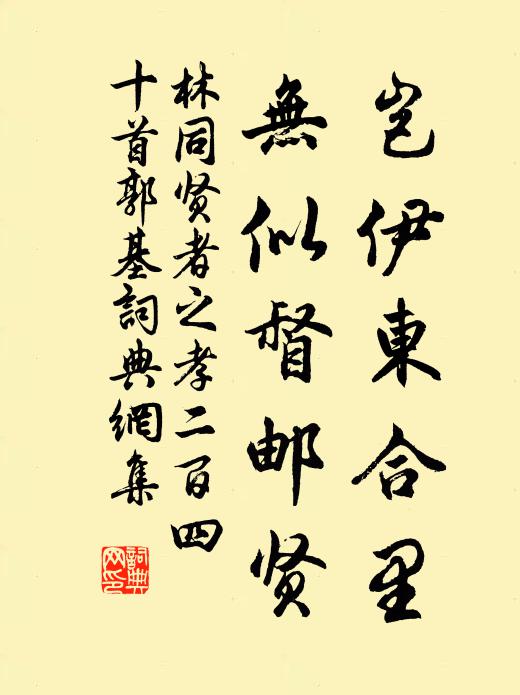 岂伊東合里
無似督邮贤
林同贤者之孝二百四
十首郭基詞典網集
詞典网印